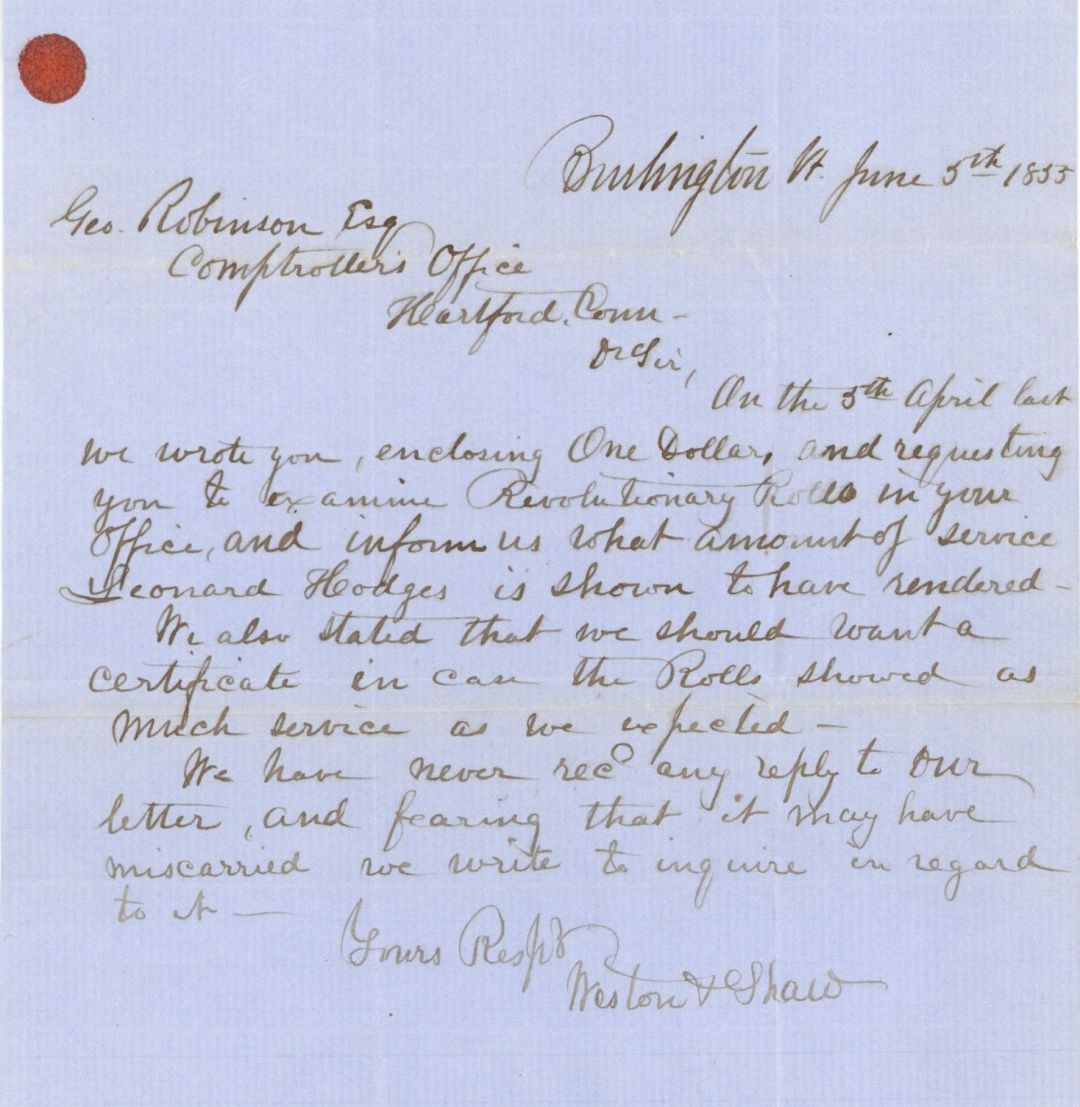 Burlington Vt. June 5th 1855
Geo. Robinson Esq
Comptroller's Office
Hartford, Conn -
Dr Sir,
On the 5th April last
we wrote you, enclosing One Dollar, and requesting
you to examine Revolutionary Rolls in your
Office, and inform us what amount of service
Leonard Hodges is shown to have rendered -
We also stated that we should want a
certificate in case the Rolls showed as
much service as we expected -
We have never recd any reply to our
letter, and fearing that it may have
miscarried we write to inquire in regard
to it -
Yours Respt
Weston & Shaw